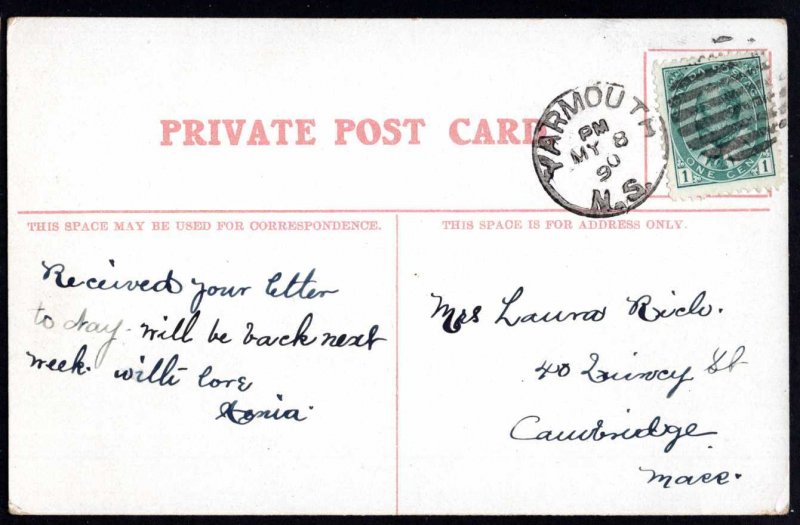 PRIVATE POST CARD
YARMOUTH
PM
MY 8
90
N.S.
1 ONE CENT 1
THIS SPACE MAY BE USED FOR CORRESPONDENCE.
THIS SPACE IS FOR ADDRESS ONLY.
Received your letter
to day. will be back next
week. with love
Mrs Laura Rich.
40 Quincy St
Cambridge
Mass.